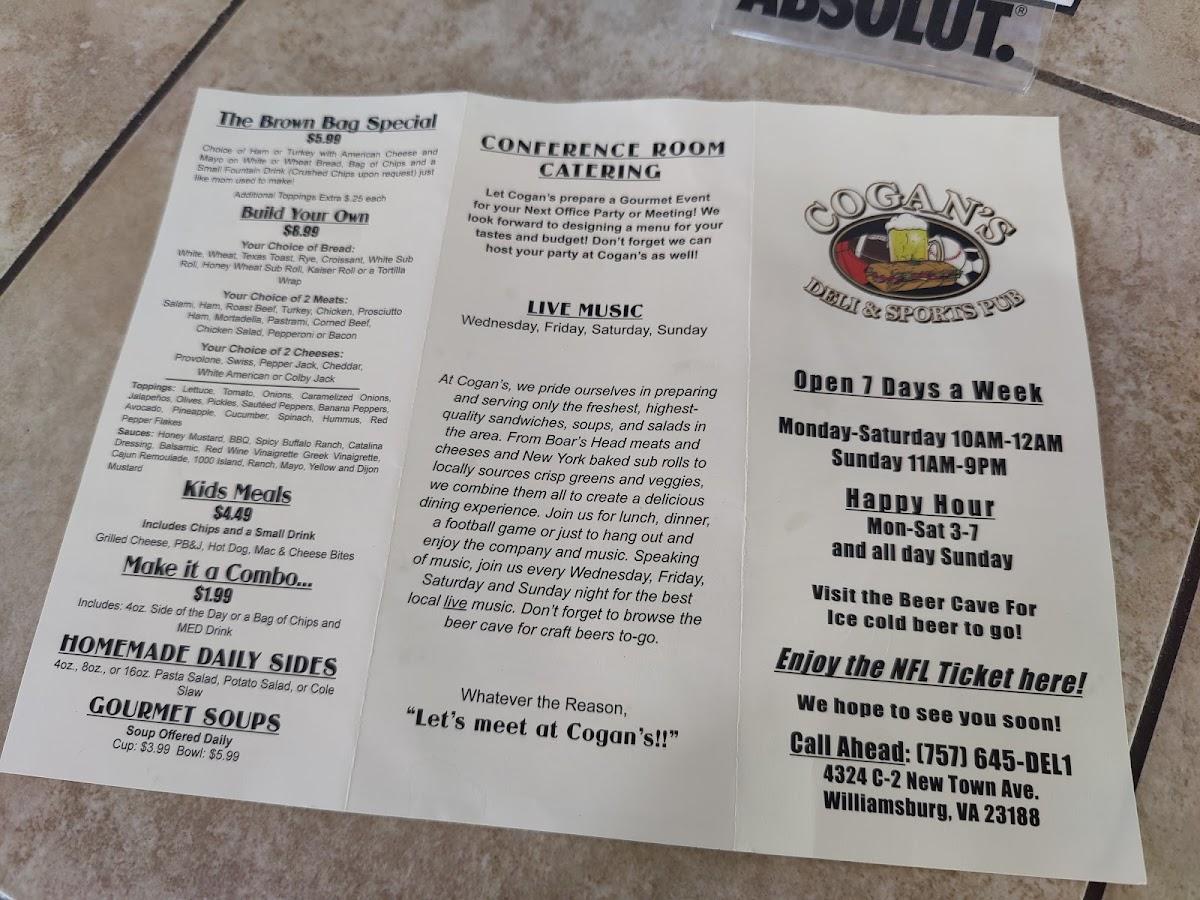 ABSOLUT.®
The Brown Bag Special
$5.99
Choice of Ham or Turkey with American Cheese and
Mayo on White or Wheat Bread, Bag of Chips and a
Small Fountain Drink (Crushed Chips upon request) just
like mom used to make!
Additional Toppings Extra $.25 each
Build Your Own
$8.99
Your Choice of Bread:
White, Wheat, Texas Toast, Rye, Croissant, White Sub
Roll, Honey Wheat Sub Roll, Kaiser Roll or a Tortilla
Wrap
Your Choice of 2 Meats:
Salami, Ham, Roast Beef, Turkey, Chicken, Prosciutto
Ham, Mortadella, Pastrami, Corned Beef,
Chicken Salad, Pepperoni or Bacon
Your Choice of 2 Cheeses:
Provolone, Swiss, Pepper Jack, Cheddar,
White American or Colby Jack
Toppings: Lettuce, Tomato, Onions, Caramelized Onions,
Jalapeños, Olives, Pickles, Sautéed Peppers, Banana Peppers,
Avocado, Pineapple, Cucumber, Spinach, Hummus, Red
Pepper Flakes
Sauces: Honey Mustard, BBQ, Spicy Buffalo Ranch, Catalina
Dressing, Balsamic, Red Wine Vinaigrette Greek Vinaigrette,
Cajun Remoulade, 1000 Island, Ranch, Mayo, Yellow and Dijon
Mustard
Kids Meals
$4.49
Includes Chips and a Small Drink
Grilled Cheese, PB&J, Hot Dog, Mac & Cheese Bites
Make it a Combo...
$1.99
Includes: 4oz. Side of the Day or a Bag of Chips and
MED Drink
HOMEMADE DAILY SIDES
4oz., 8oz., or 16oz. Pasta Salad, Potato Salad, or Cole
Slaw
GOURMET SOUPS
Soup Offered Daily
Cup: $3.99 Bowl: $5.99
CONFERENCE ROOM
CATERING
Let Cogan's prepare a Gourmet Event
for your Next Office Party or Meeting! We
look forward to designing a menu for your
tastes and budget! Don't forget we can
host your party at Cogan's as well!
LIVE MUSIC
Wednesday, Friday, Saturday, Sunday
At Cogan's, we pride ourselves in preparing
and serving only the freshest, highest-
quality sandwiches, soups, and salads in
the area. From Boar's Head meats and
cheeses and New York baked sub rolls to
locally sources crisp greens and veggies,
we combine them all to create a delicious
dining experience. Join us for lunch, dinner,
a football game or just to hang out and
enjoy the company and music. Speaking
of music, join us every Wednesday, Friday,
Saturday and Sunday night for the best
local live music. Don't forget to browse the
beer cave for craft beers to-go.
Whatever the Reason,
"Let's meet at Cogan's!!"
COGAN'S
DELI & SPORTS PUB
Open 7 Days a Week
Monday-Saturday 10AM-12AM
Sunday 11AM-9PM
Happy Hour
Mon-Sat 3-7
and all day Sunday
Visit the Beer Cave For
Ice cold beer to go!
Enjoy the NFL Ticket here!
We hope to see you soon!
Call Ahead: (757) 645-DEL1
4324 C-2 New Town Ave.
Williamsburg, VA 23188